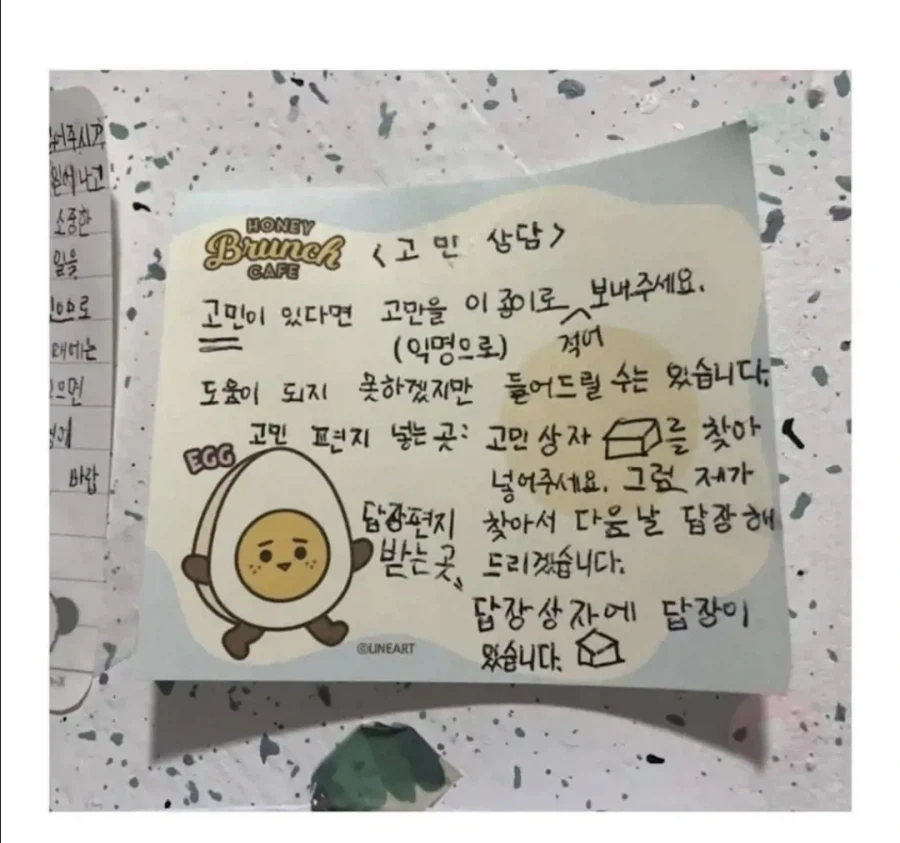 어주시기
일에 나고
소중한
일을
으로
때에는
으면
바랍
HONEY
Brunch
CAFE
<고민 상담>
고민이 있다면 고만을 이 종이로 적어 보내주세요.
(익명으로)
도움이 되지 못하겠지만 들어드릴 수는 있습니다.
고민 편지 넣는 곳: 고민상자 를 찾아
넣어주세요. 그럼 제가
찾아서 다음날 답장해
드리겠습니다.
EGG
답장편지
받는 곳
답장상자에 답장이
있습니다.
©LINEART